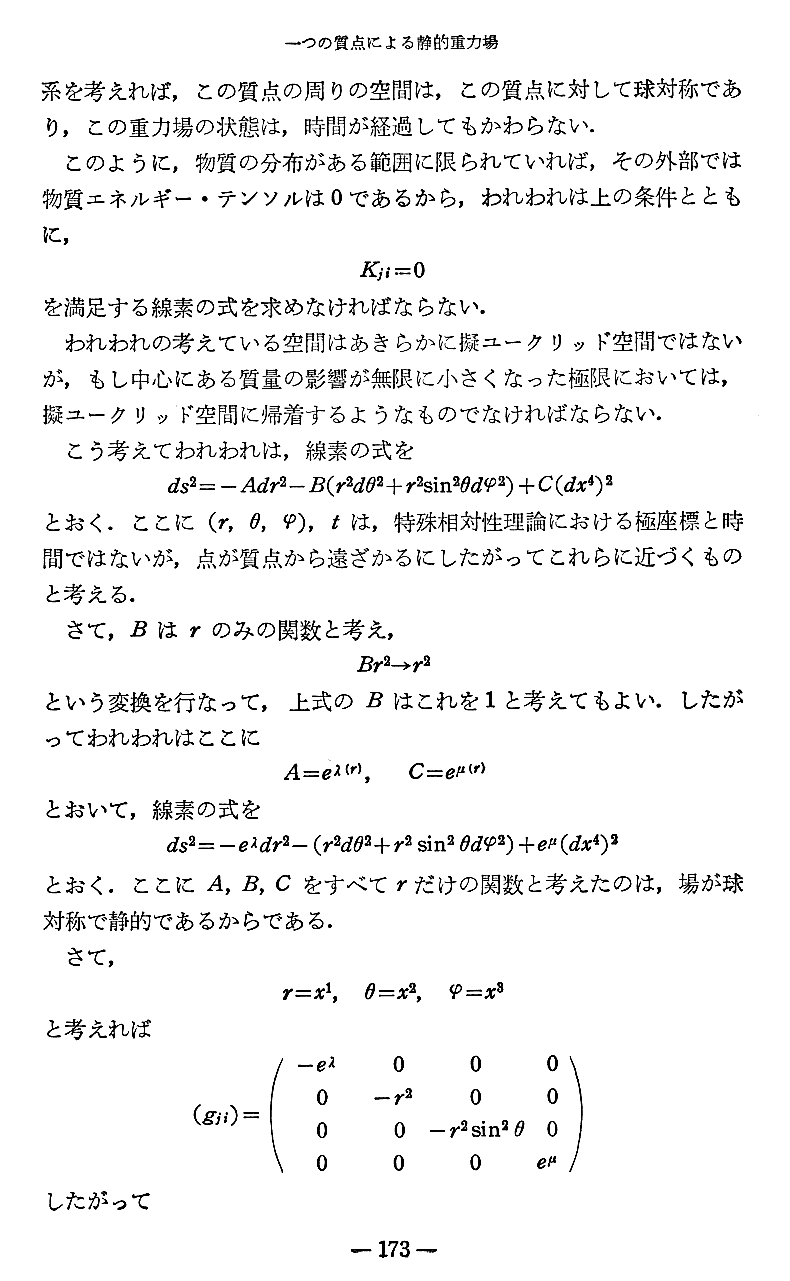 一つの質点による静的重力場
系を考えれば，この質点の周りの空間は，この質点に対して球対称であ
り，この重力場の状態は，時間が経過してもかわらない．
このように，物質の分布がある範囲に限られていれば，その外部では
物質エネルギー・テンソルは0であるから，われわれは上の条件ととも
に，
Kji=0
を満足する線素の式を求めなければならない．
われわれの考えている空間はあきらかに擬ユークリッド空間ではない
が，もし中心にある質量の影響が無限に小さくなった極限においては，
擬ユークリッド空間に帰着するようなものでなければならない．
こう考えてわれわれは，線素の式を
ds²=−Adr²−B(r²dθ²+r²sin²θdφ²)+C(dx⁴)²
とおく．ここに (r, θ, φ), t は，特殊相対性理論における極座標と時
間ではないが，点が質点から遠ざかるにしたがってこれらに近づくもの
と考える．
さて，B は r のみの関数と考え，
Br²→r²
という変換を行なって，上式の B はこれを1と考えてもよい．したが
ってわれわれはここに
A=e^λ(r),  C=e^μ(r)
とおいて，線素の式を
ds²=−e^λdr²−(r²dθ²+r² sin² θdφ²)+e^μ(dx⁴)²
とおく．ここに A, B, C をすべて r だけの関数と考えたのは，場が球
対称で静的であるからである．
さて，
r=x¹,  θ=x²,  φ=x³
と考えれば
−e^λ 0 0 0
0 −r² 0 0
(gji)=
0 0 −r² sin² θ 0
0 0 0 e^μ
したがって
— 173 —